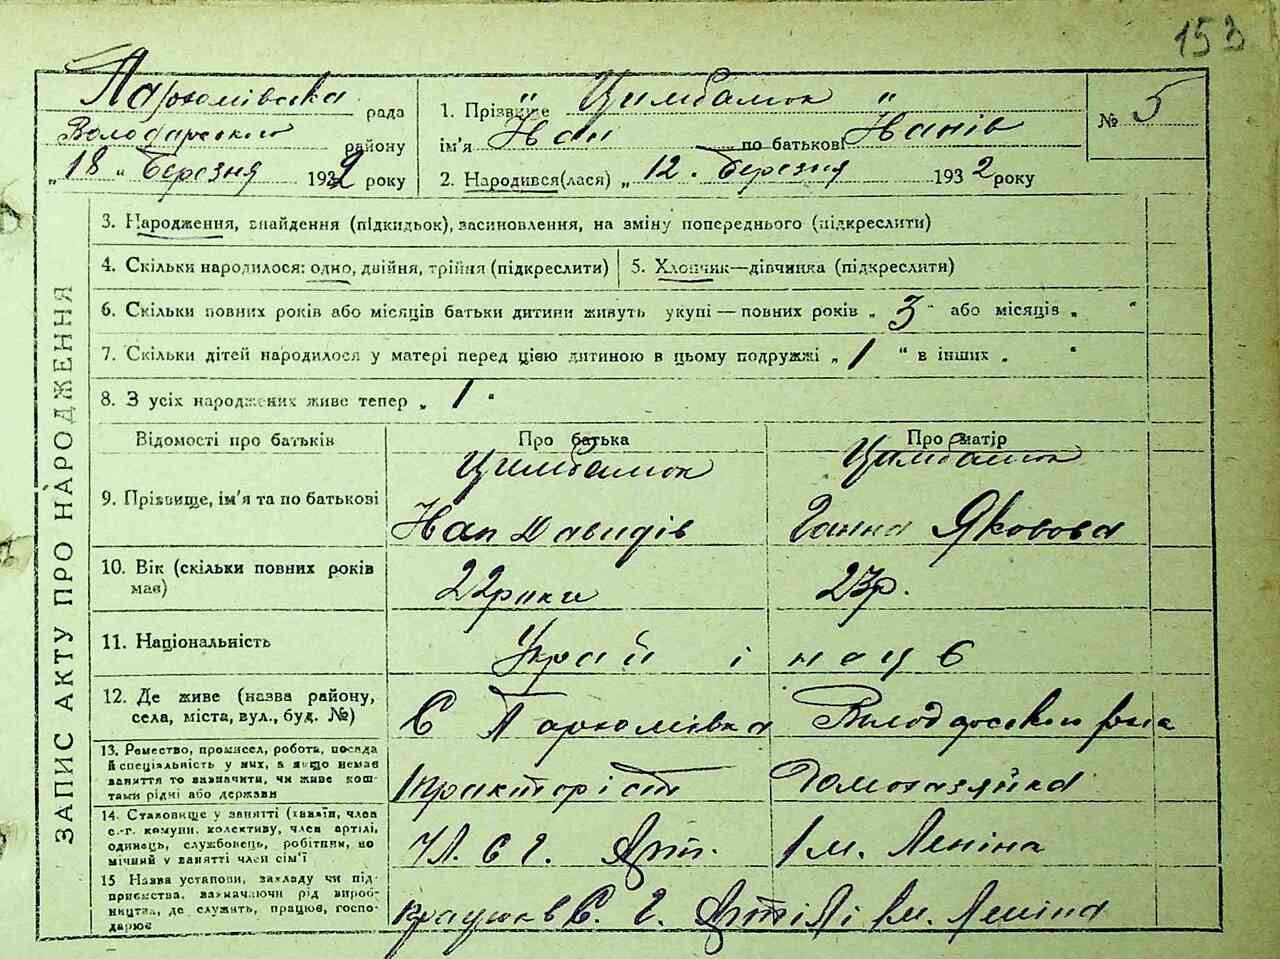 153
Пархомівська рада
Володарського району
„18" березня 1932 року
1. Прізвище „Цимбалюк"
ім'я Іван по батькові Іванів
2. Народився(лася) „12. березня 1932 року
№ 5
ЗАПИС АКТУ ПРО НАРОДЖЕННЯ
3. Народження, знайдення (підкидьок), засиновлення, на зміну попереднього (підкреслити)
4. Скільки народилося: одно, двійня, трійня (підкреслити)
5. Хлопчик—дівчинка (підкреслити)
6. Скільки повних років або місяців батьки дитини живуть укупі — повних років „3" або місяців „ "
7. Скільки дітей народилося у матері перед цією дитиною в цьому подружжі „1" в інших „ "
8. З усіх народжених живе тепер „1"
Відомості про батьків
Про батька
Про матір
9. Прізвище, ім'я та по батькові
Цимбалюк
Іван Давидів
Цимбалюк
Ганна Яковова
10. Вік (скільки повних років
має)
22 роки
23 р.
11. Національність
Україінці
12. Де живе (назва району,
села, міста, вул., буд. №)
С Пархомівка Володарського р-на
13. Ремество, промисел, робота, посада
й спеціальність у них, а якщо немає
заняття то зазначити, чи живе кош-
тами рідні або держави
тракторіст
домохазяйка
14. Становище у занятті (хазяїн, член
с.-г. комуни, колективу, член артілі,
одинець, службовець, робітник, по
мічний у занятті член сім'ї
Чл. С Г. Арт. Ім. Леніна
15 Назва установи, закладу чи під-
приємства, зазначаючи рід вироб-
ництва, де служить, працює, госпо-
дарює
працює в С. Г. Артілі Ім. Леніна